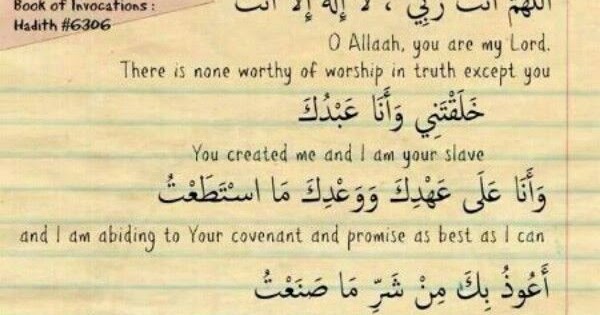 Book of Invocations :
Hadith #6306
اللَّهُمَّ أَنْتَ رَبِّي ، لَا إِلَهَ إِلَّا أَنْتَ
O Allaah, you are my Lord.
There is none worthy of worship in truth except you
خَلَقْتَنِي وَأَنَا عَبْدُكَ
You created me and I am your slave
وَأَنَا عَلَى عَهْدِكَ وَوَعْدِكَ مَا اسْتَطَعْتُ
and I am abiding to Your covenant and promise as best as I can
أَعُوذُ بِكَ مِنْ شَرِّ مَا صَنَعْتُ